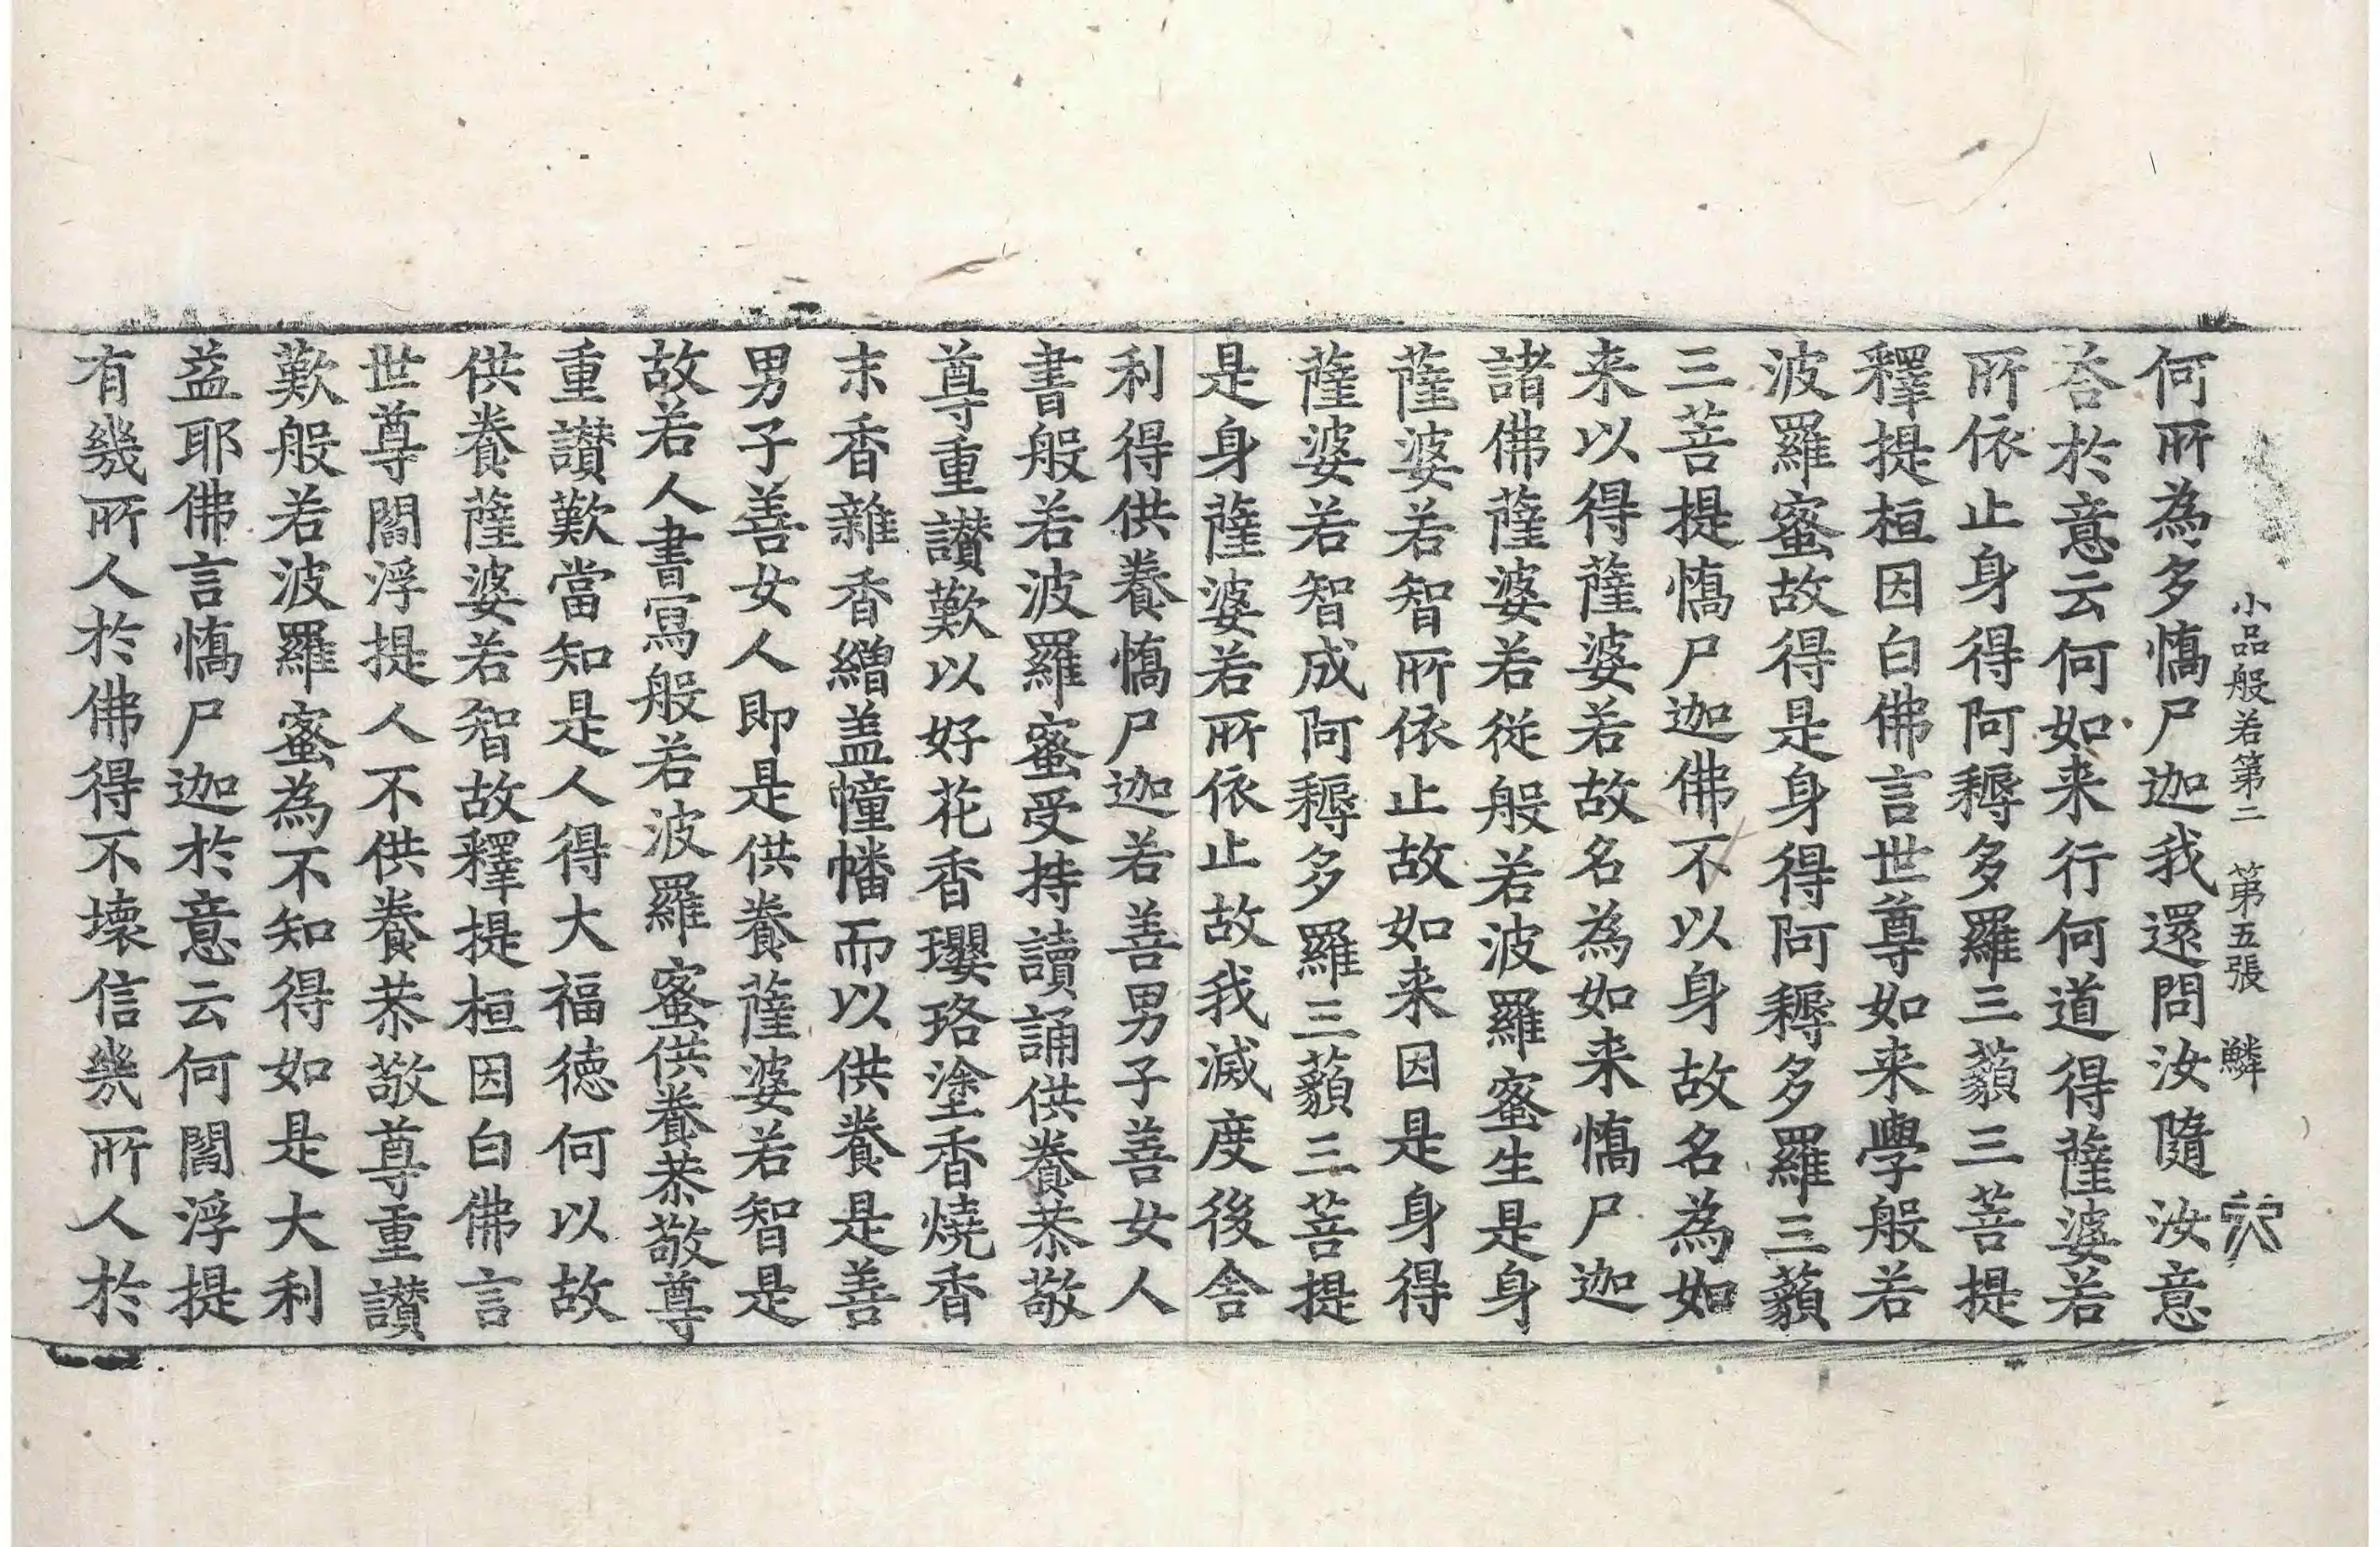 小品般若第二 第五張 鱗
何所為多憍尸迦我還問汝隨汝意
荅於意云何如来行何道得薩婆若
所依止身得阿耨多羅三藐三菩提
釋提桓因白佛言世尊如来學般若
波羅蜜故得是身得阿耨多羅三藐
三菩提憍尸迦佛不以身故名為如
来以得薩婆若故名為如来憍尸迦
諸佛薩婆若從般若波羅蜜生是身
薩婆若智所依止故如来因是身得
薩婆若智成阿耨多羅三藐三菩提
是身薩婆若所依止故我滅度後舍
利得供養憍尸迦若善男子善女人
書般若波羅蜜受持讀誦供養恭敬
尊重讃歎以好花香瓔珞塗香燒香
末香雜香繒盖幢幡而以供養是善
男子善女人即是供養薩婆若智是
故若人書寫般若波羅蜜供養恭敬尊
重讃歎當知是人得大福徳何以故
供養薩婆若智故釋提桓因白佛言
世尊閻浮提人不供養恭敬尊重讃
歎般若波羅蜜為不知得如是大利
益耶佛言憍尸迦於意云何閻浮提
有幾所人於佛得不壞信幾所人於